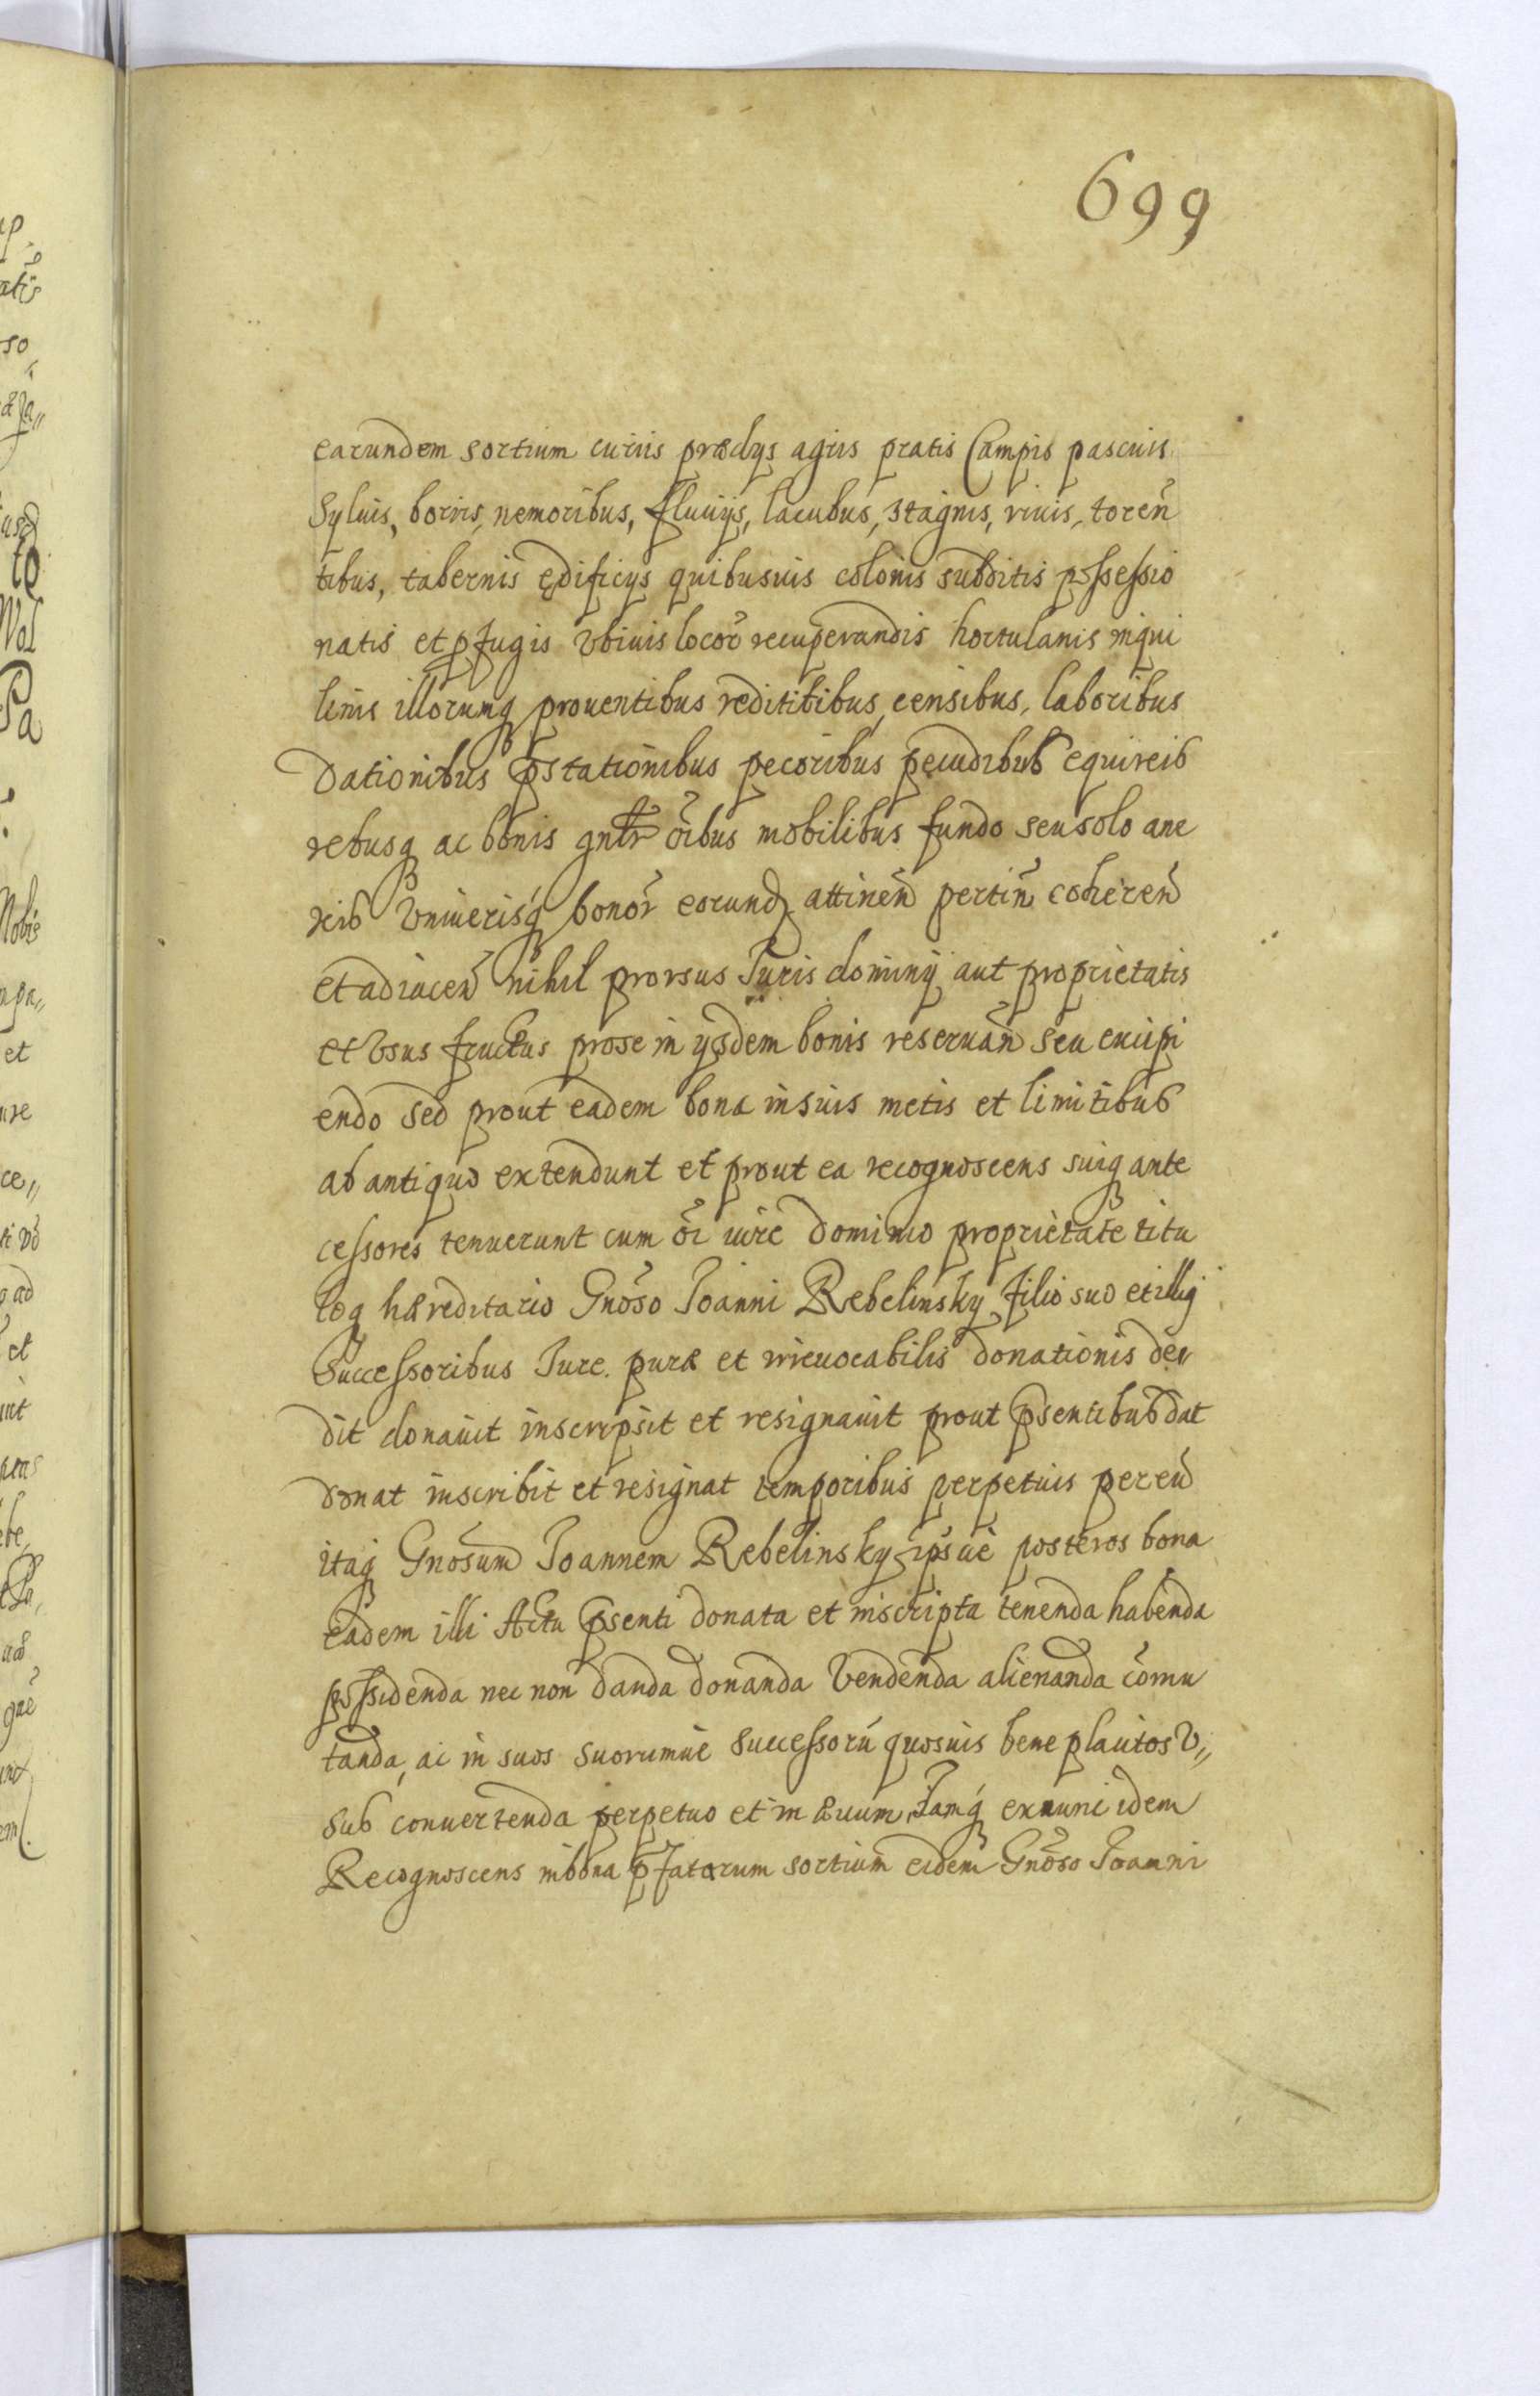 699
earundem sortium curiis prædys agris pratis Campis pascuis
Syluis, borris, nemoribus, fluuijs, lacubus, stagnis, riuis, toren̄
tibus, tabernis ędificys quibusuis colonis subditis possessio
natis et pfugis vbiuis locor̄ recuperandis hortulanis inqui
linis illorumq prouentibus redititibus, censibus, laboribus
Dationibus p̄stationibus pecoribus pecudibus equireis
rebusq ac bonis gnlr oībus mobilibus fundo seu solo ane
xis Vniuerisq bonor̄ eorund attinen̄ pertin̄ coheren̄
et adiacen̄ nihil prorsus Juris dominij aut proprietatis
et Vsus fructus pro se in ysdem bonis reseruan̄ seu excipi
endo sed prout eadem bona in suis metis et limitibus
ab antiquo extendunt et prout ea recognoscens suiq ante
cessores tenuerunt cum oī iure dominio proprietate titu
loq hæreditario Gnōso Joanni Rebelinsky filio suo et illig
Successoribus Jure puræ et irreuocabilis donationis de
dit donauit inscripsit et resignauit prout p̄sentibus dat
donat inscribit et resignat temporibus perpetuis per eū
itaq Gnōsum Joannem Rebelinsky ipsūe posteros bona
eadem illi Actu p̄senti donata et inscripta tenenda habenda
possidenda nec non danda donanda Vendenda alienanda cōmu
tanda, ac in suos suorumue successorū quosuis bene placitos v,,
sus conuertenda perpetuo et in æuum Jamq́ exnunc idem
Recognoscens in bona p̄fatorum sortium eidem Gnōso Joanni